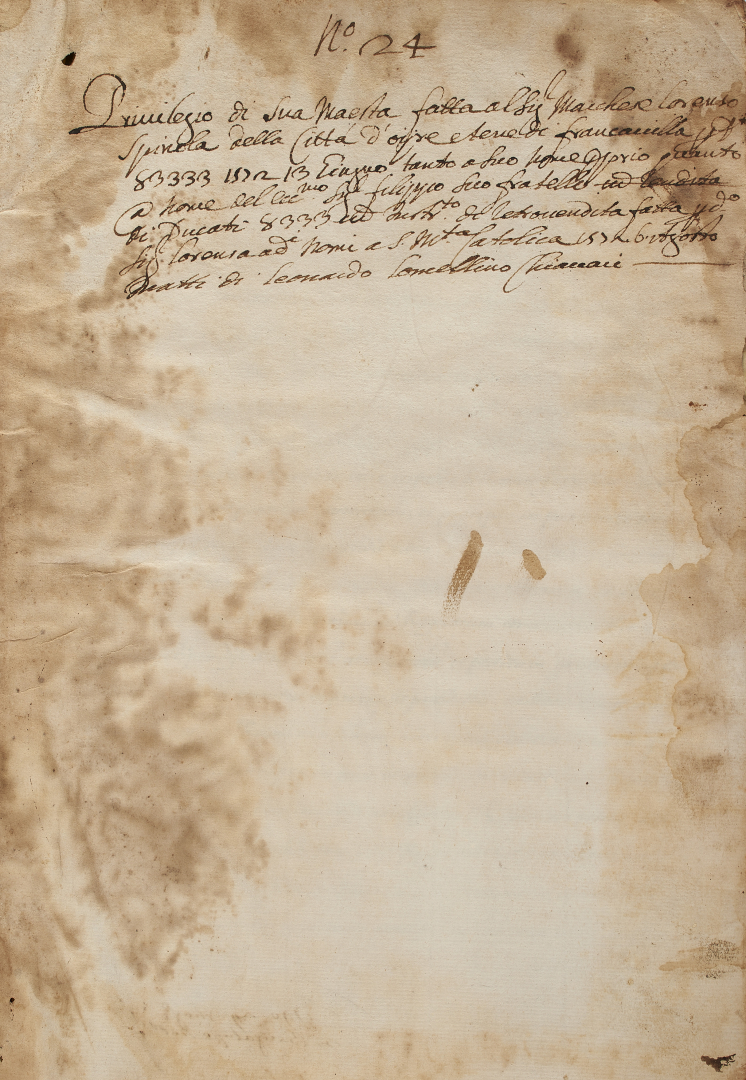 N.º 24
Privilegio di Sua Maesta fatta al Sig.r Marchese Lorenso
Spinola della Citta d'oyre e terre di francavilla
83333 1572 13 Giugno tanto a suo nome proprio quanto
a nome del ecc.mo Sig.r filippo suo fratello ed vendita
di Ducati 8333 ed Instr.to di retrovendita fatta
Sig.r Lorenso ad.i Nomi a S. M.ta Catolica 1572 6 Agosto
in atti di Leonardo Lomellino Chiavari